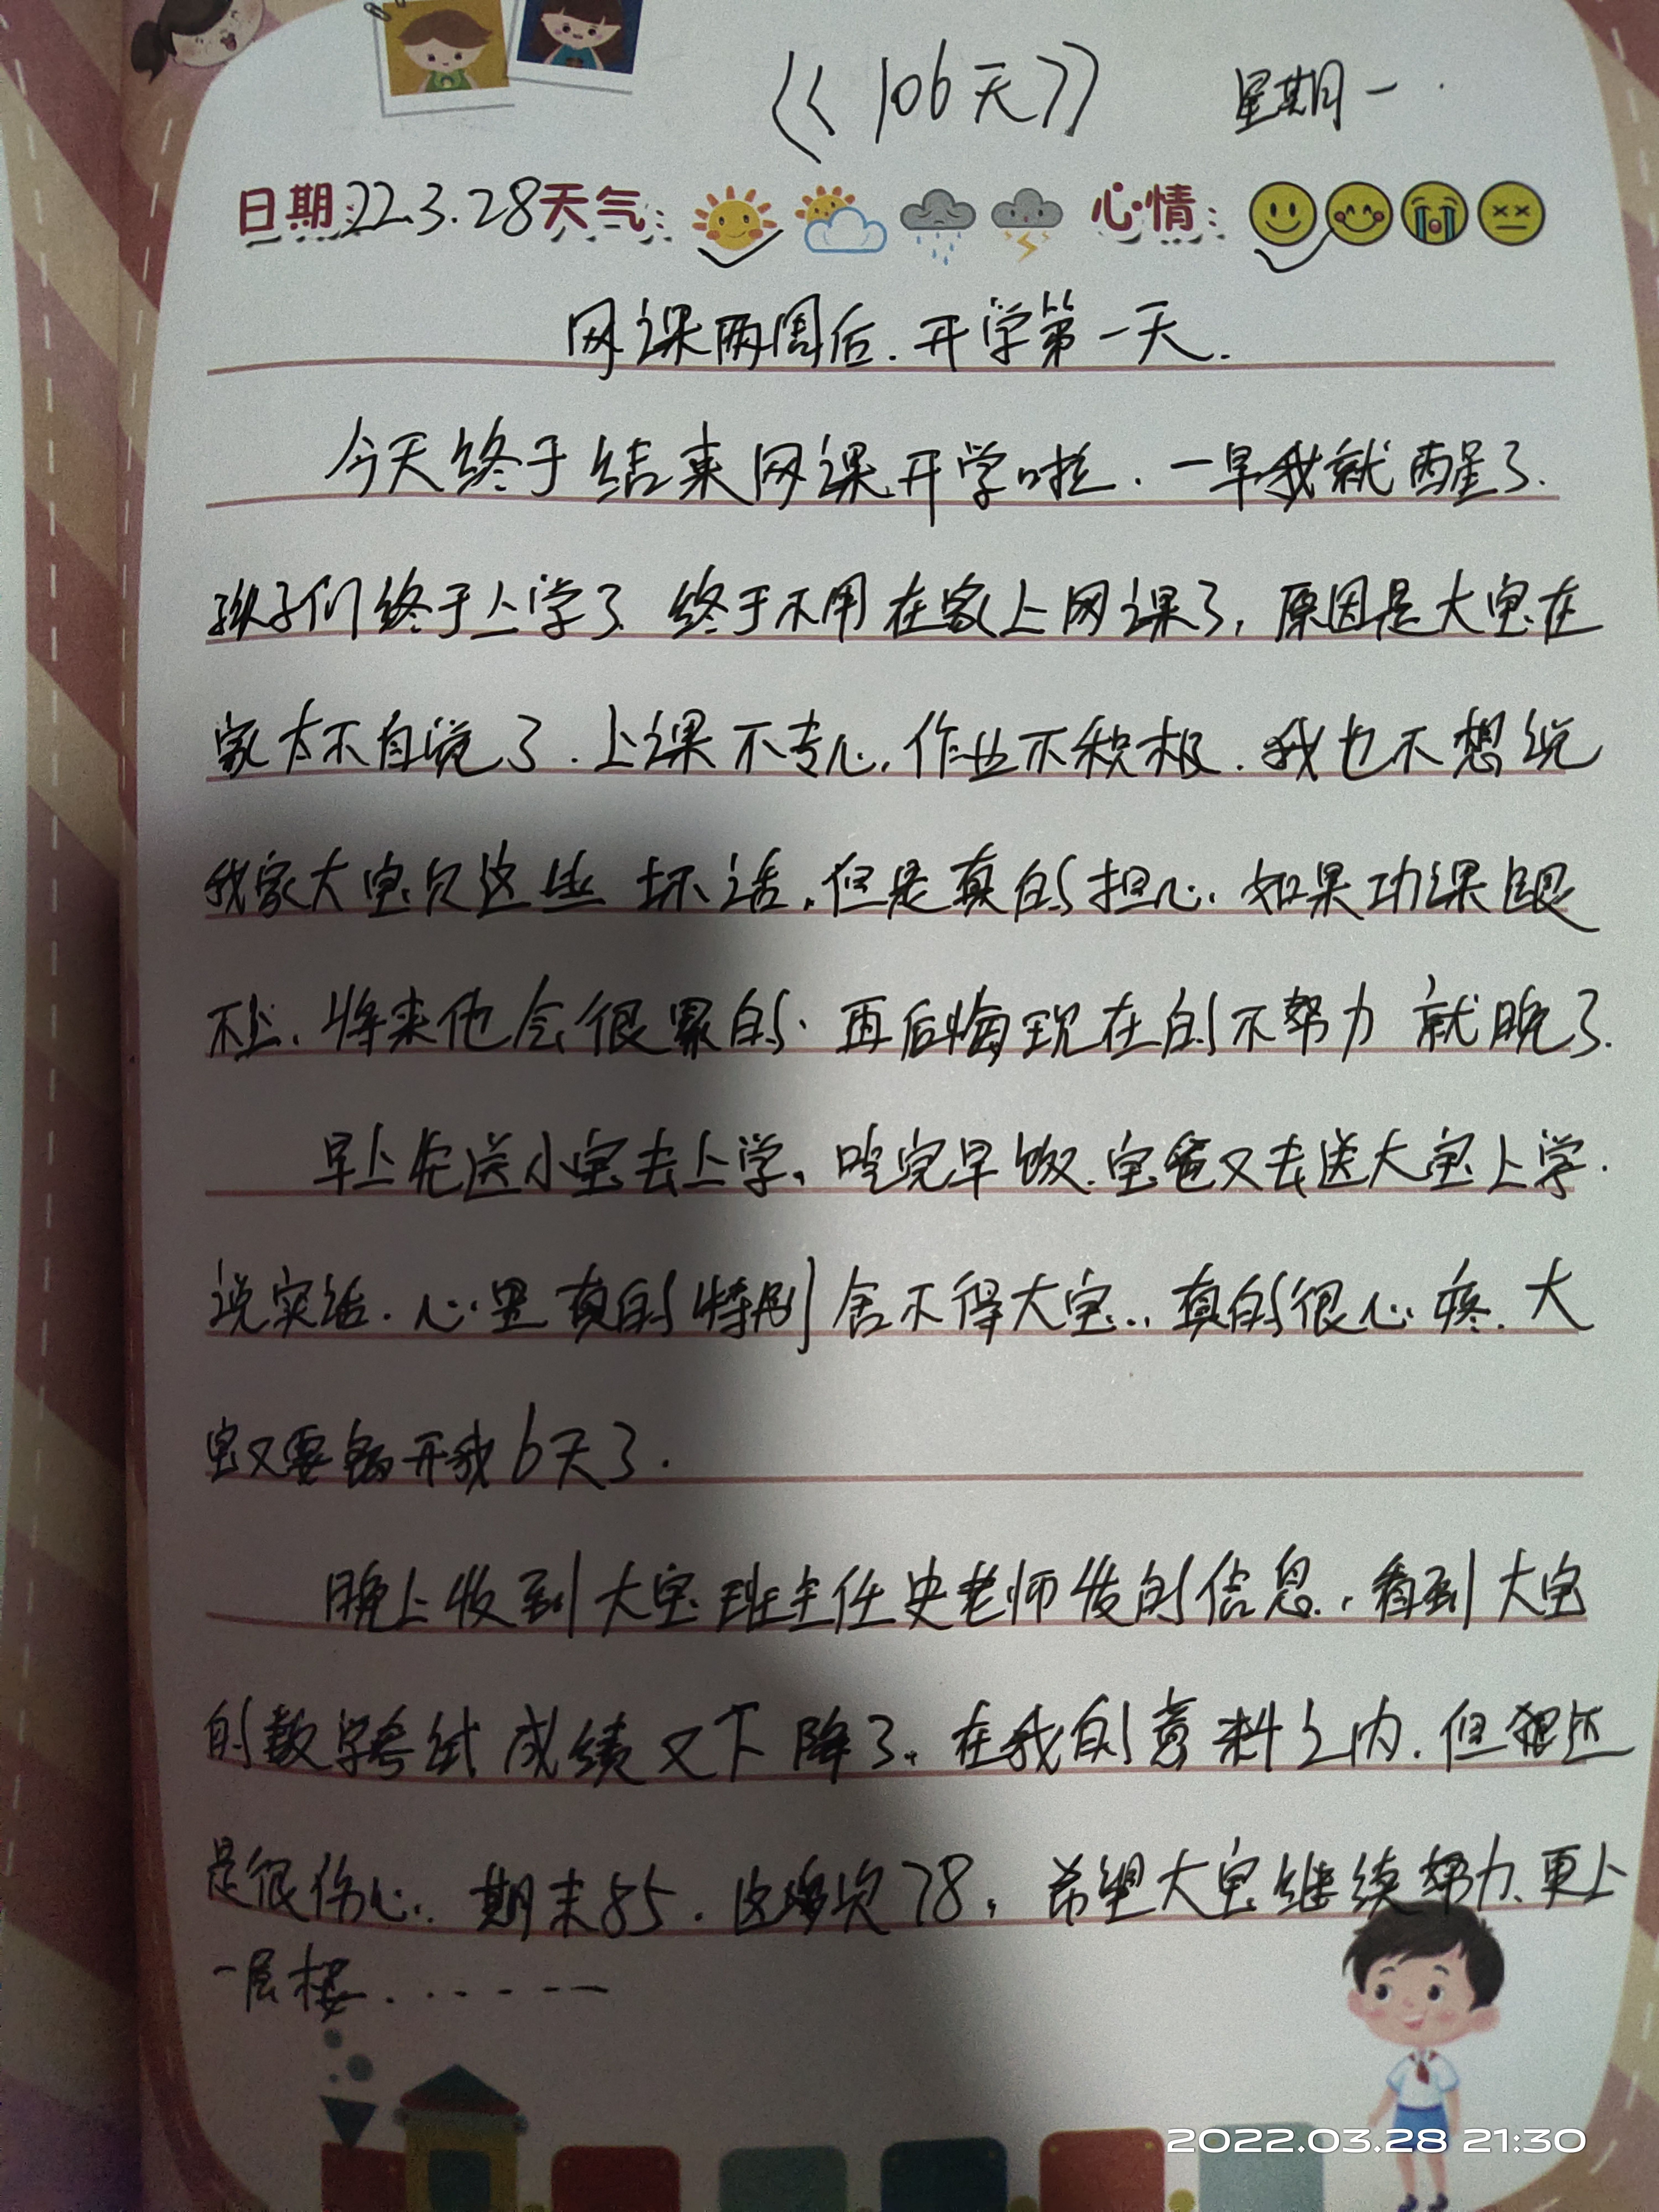 《106天》 星期一
日期:22.3.28 天气: 心情:
网课两周后.开学第一天.
今天终于结束网课开学啦.一早我就醒了.
孩子们终于上学了.终于不用在家上网课了,原因是大宝在
家太不自觉了.上课不专心,作业不积极.我也不想说
我家大宝这些坏话,但是真的担心.如果功课跟
不上、将来他会很累的.再后悔现在的不努力就晚了.
早上先送小宝去上学,吃完早饭.宝爸又去送大宝上学.
说实话.心里真的特别舍不得大宝...真的很心疼.大
宝又要离开我6天了.
晚上收到大宝班主任史老师发的信息.,看到大宝
的数学考试成绩又下降了.在我的意料之内.但还
是很伤心.期末85.这次78,希望大宝继续努力、更上
一层楼.......
2022.03.28 21:30